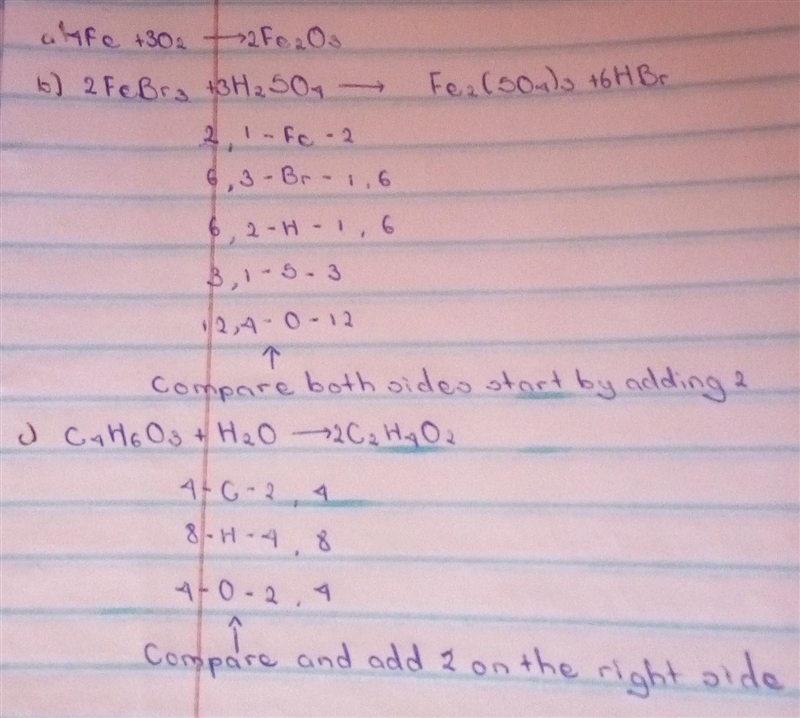 a) 4Fe + 3O2 → 2Fe2O3
b) 2FeBr3 + 3H2SO4 → Fe2(SO4)3 + 6HBr
2, 1 - Fe - 2
6, 3 - Br - 1, 6
6, 2 - H - 1, 6
3, 1 - S - 3
12, 4 - O - 12
↑
Compare both sides start by adding 2
c) C4H6O3 + H2O → 2C2H4O2
4 - C - 2, 4
8 - H - 4, 8
4 - O - 2, 4
↑
Compare and add 2 on the right side